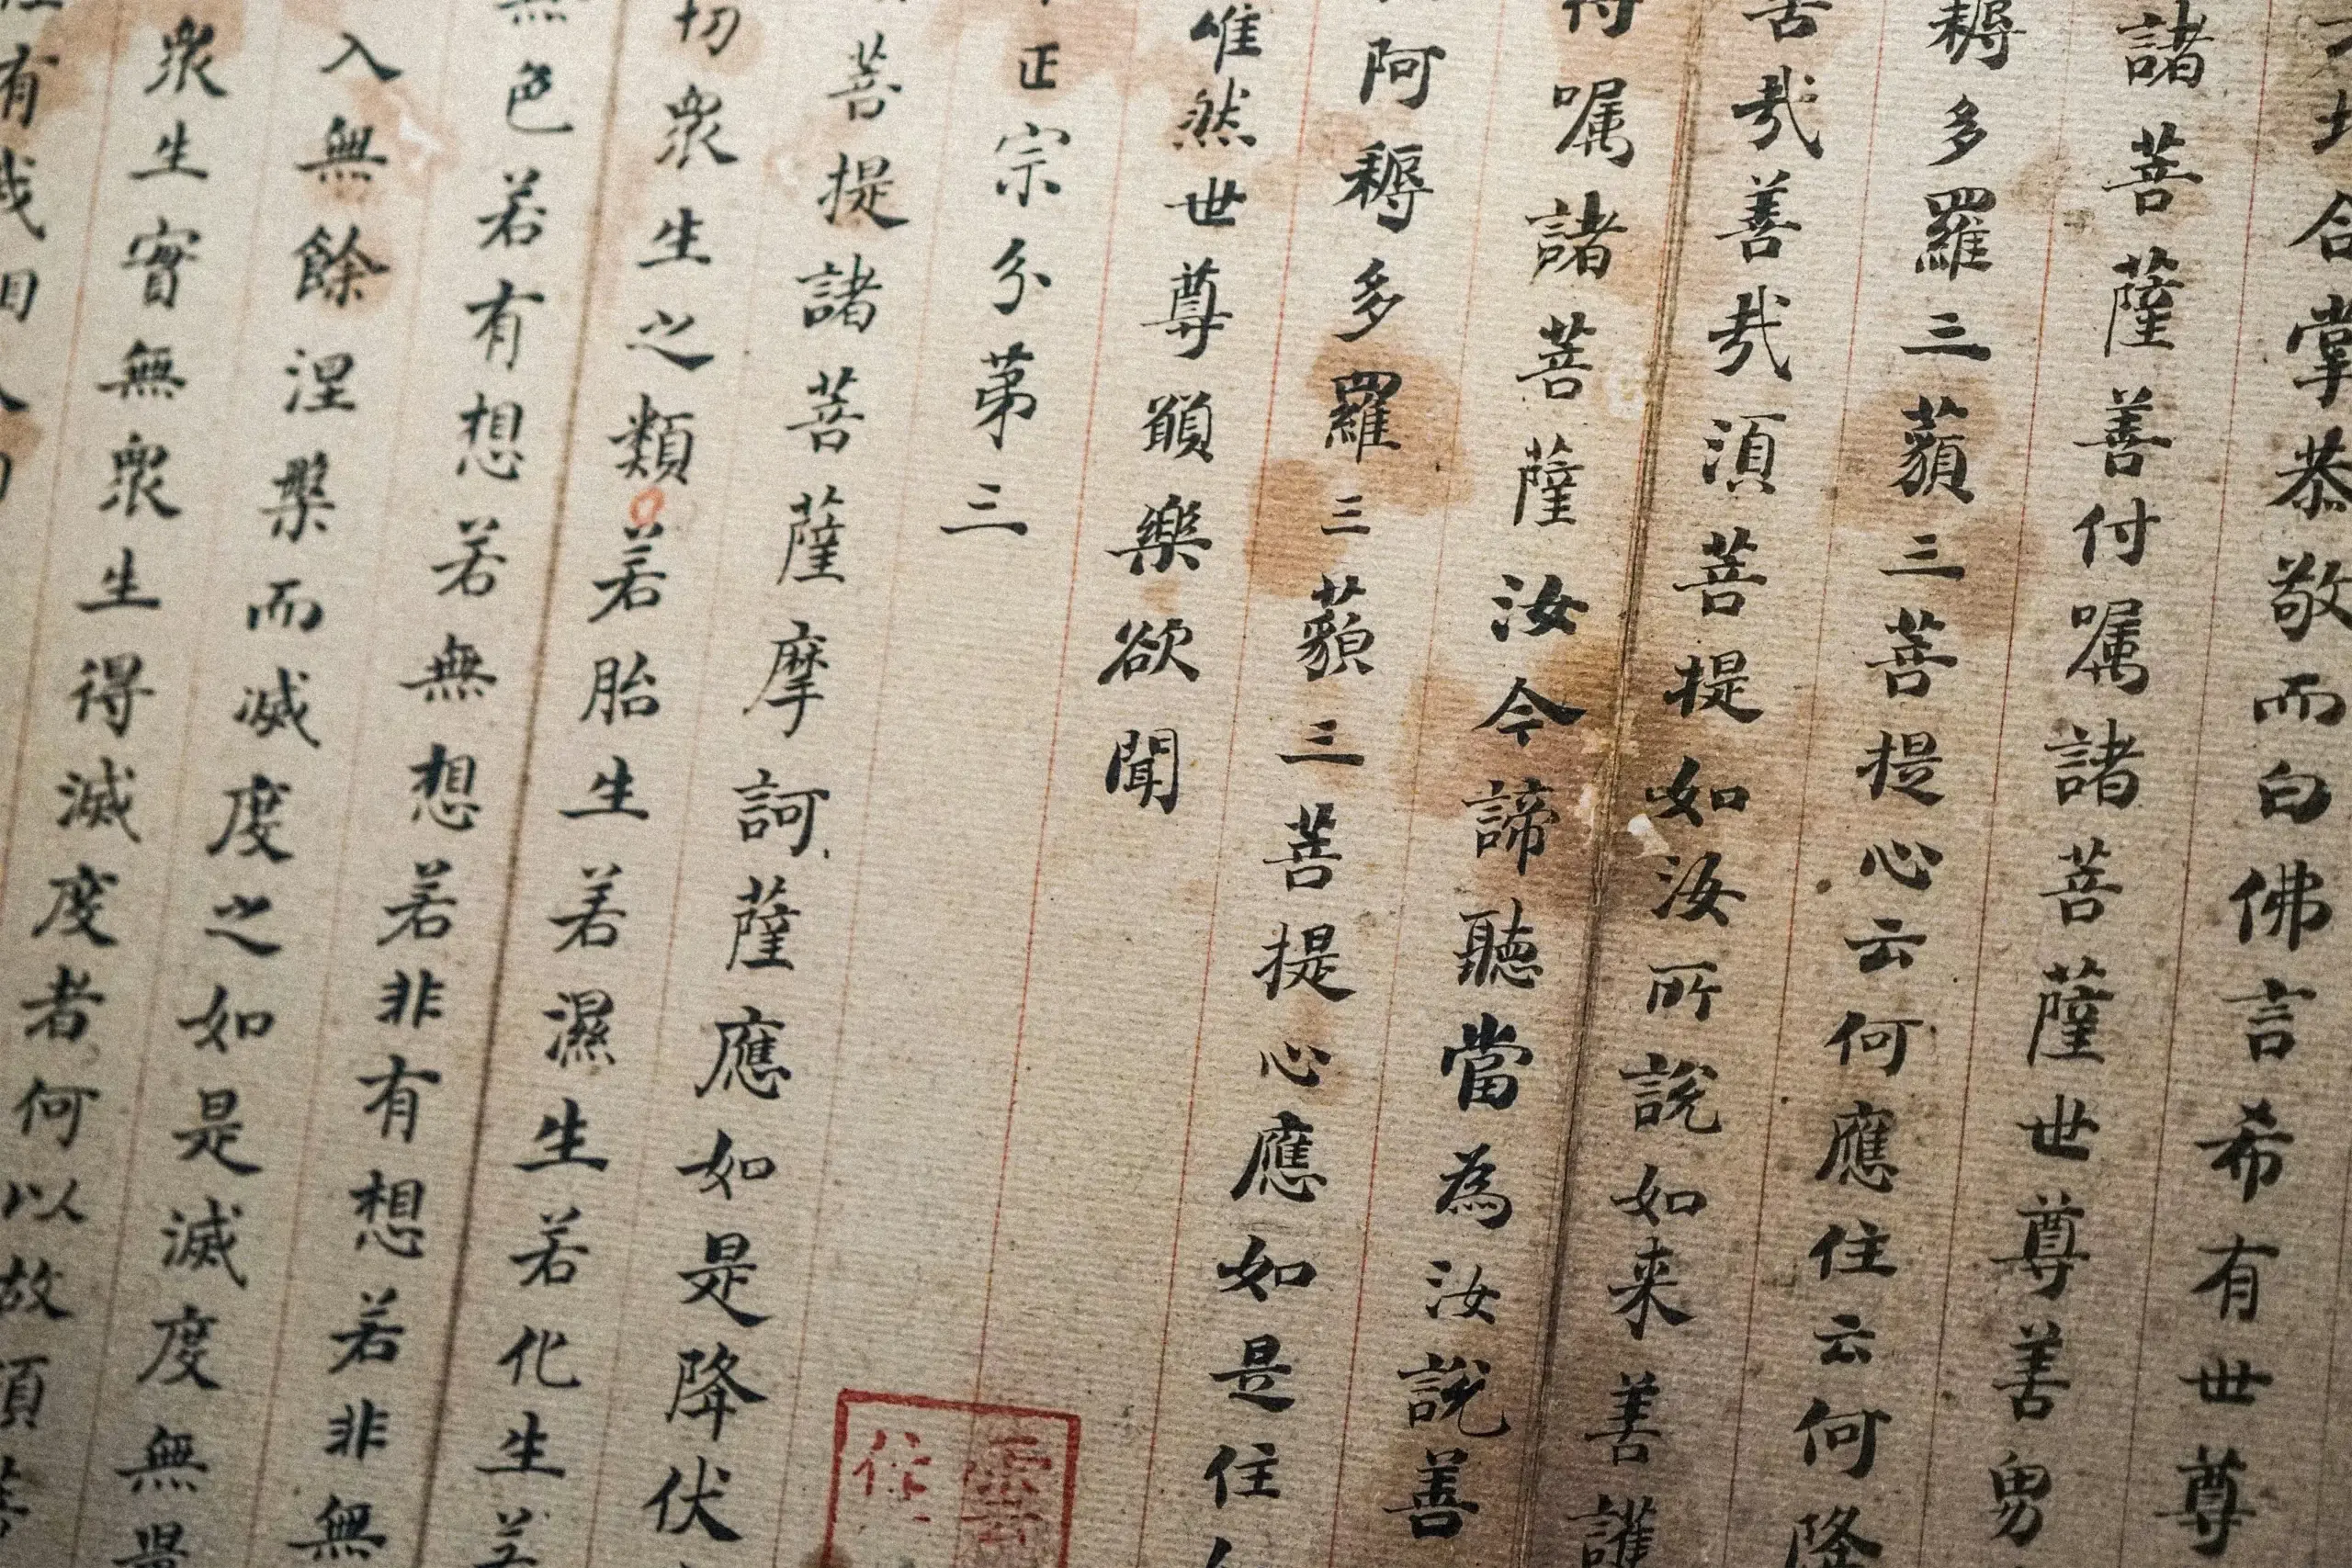 地合掌恭敬而白佛言希有世尊
諸菩薩善付嘱諸菩薩世尊善男
耨多羅三藐三菩提心云何應住云何降
哉善哉須菩提如汝所說如来善護
嘱諸菩薩汝今諦聽當為汝說善
阿耨多羅三藐三菩提心應如是住
唯然世尊願樂欲聞
正宗分第三
菩提諸菩薩摩訶薩應如是降伏
切衆生之類若胎生若濕生若化生若
無色若有想若無想若非有想若非無
入無餘涅槃而滅度之如是滅度無量
衆生實無衆生得滅度者何以故須菩
有我相人相
雲
住